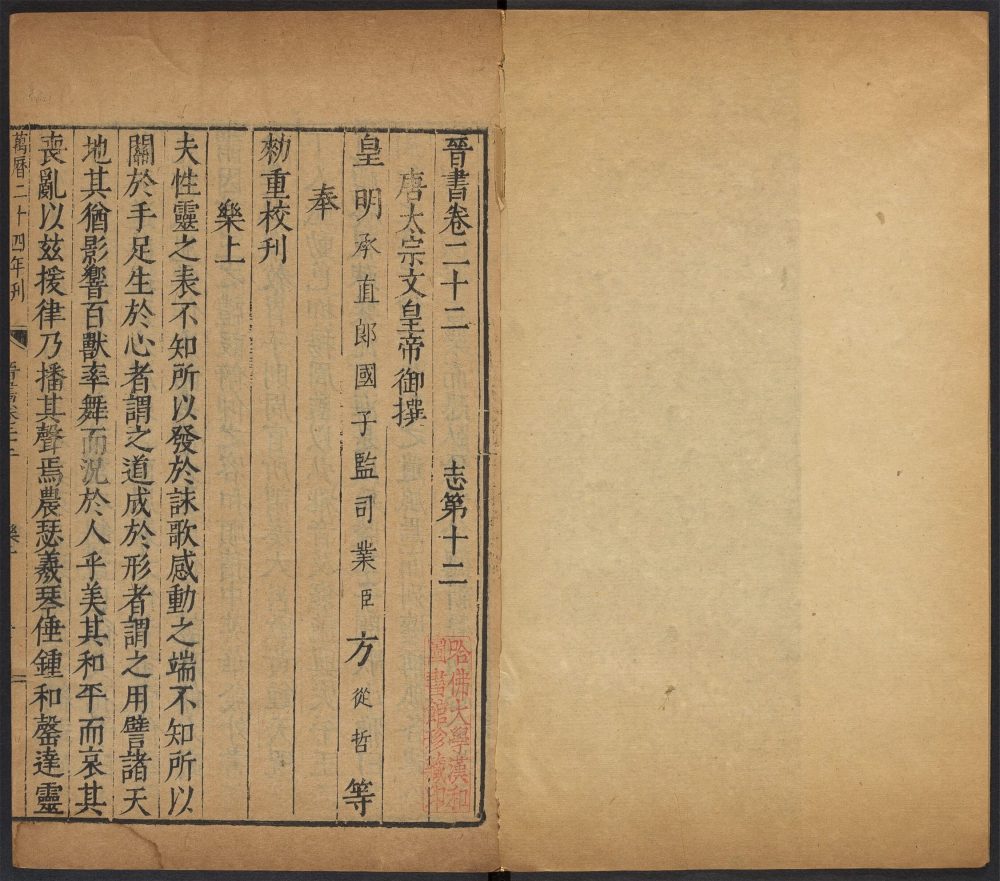 晉書卷二十二 志第十二
唐太宗文皇帝御撰
皇明承直郎國子監司業臣方從哲等
奉
勑重校刊
樂上
夫性靈之表不知所以發於詠歌感動之端不知所以
關於手足生於心者謂之道成於形者謂之用譬諸天
地其猶影響百獸率舞而況於人乎美其和平而哀其
喪亂以玆援律乃播其聲焉農瑟羲琴倕鍾和罄達靈
萬曆二十四年刊
哈佛大學漢和
圖書館珍藏印